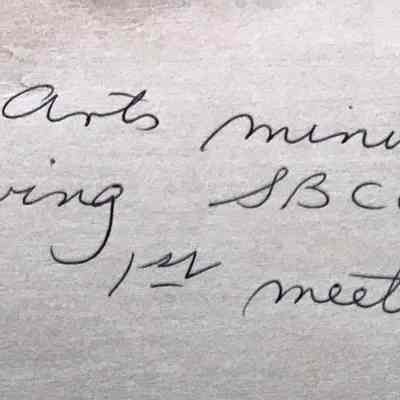 Arts minu
ving SBC
1st meet